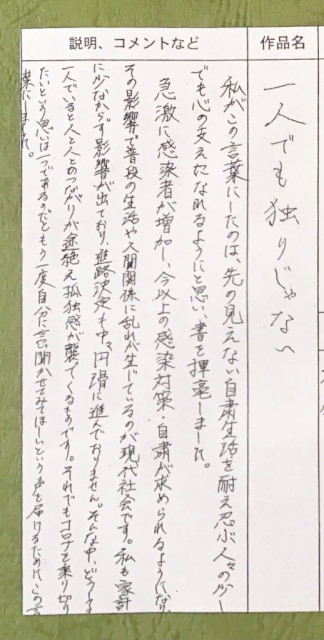 作品名
一人でも独りじゃない
説明、コメントなど
私がこの言葉にしたのは、先の見えない自粛生活を耐え忍ぶ人々の少し
でも心の支えになれるようにと思い、書を揮毫しました。
急激に感染者が増加し、今以上の感染対策・自粛が求められるようになり、
その影響で普段の生活や人間関係に乱れが生じているのが現代社会です。私も家計
に少なからず影響が出ており、進路決定も中々円滑に進んでおりません。そんな中、どうしても
一人でいると人と人とのつながりが途絶え孤独感が襲ってくるものです。それでもコロナを乗り切り
たいという思いは一つであるのだともう一度自分に言い聞かせてみてほしいという声を届けるためにこの言
葉にしました。